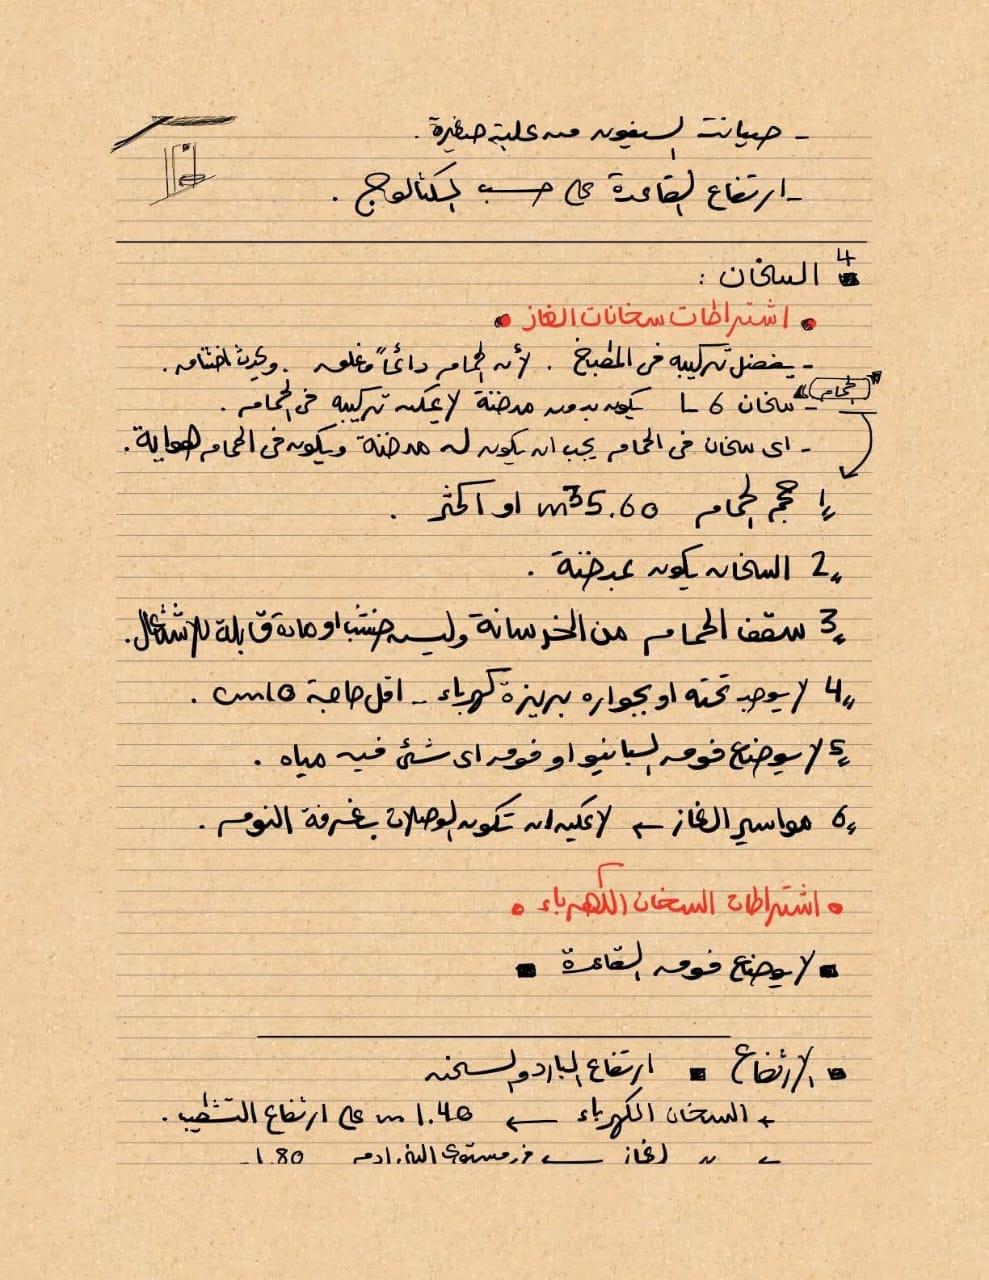 - صيانت السيفون من علبة صغيرة .
- ارتفاع القاعدة على حسب الكتالوج .
4
السخان :
اشتراطات سخانات الغاز
- يفضل تركيبه فى المطبخ . لأن الحمام دائماً مغلق . ويحدث اختناق .
الحمام
- سخان 6 L يكون بدون مدخنة لا يمكن تركيبه فى الحمام .
- اى سخان فى الحمام يجب ان يكون له مدخنة ويكون فى الحمام هواية .
1 حجم الحمام 5.60 m3 او اكثر .
2 السخان يكون بمدخنة .
3 سقف الحمام من الخرسانة وليس خشب او مادة قابلة للإشتعال .
4 لا يوجد تحته او بجواره بريزة كهرباء - اقل حاجة cm10 .
5 لا يوضاع فوق البانيو او فوق اى شئ فيه مياه .
6 مواسير الغاز ← لا يمكن ان تكون الوصلات بغرفة النوم .
اشتراطات السخان الكهرباء
لا يوضاع فوق القاعدة
الإرتفاع ارتفاع البارد والسخن
السخان الكهرباء ← 1.40 m على ارتفاع التشطيب .
" غاز ← من مستوى 1.80